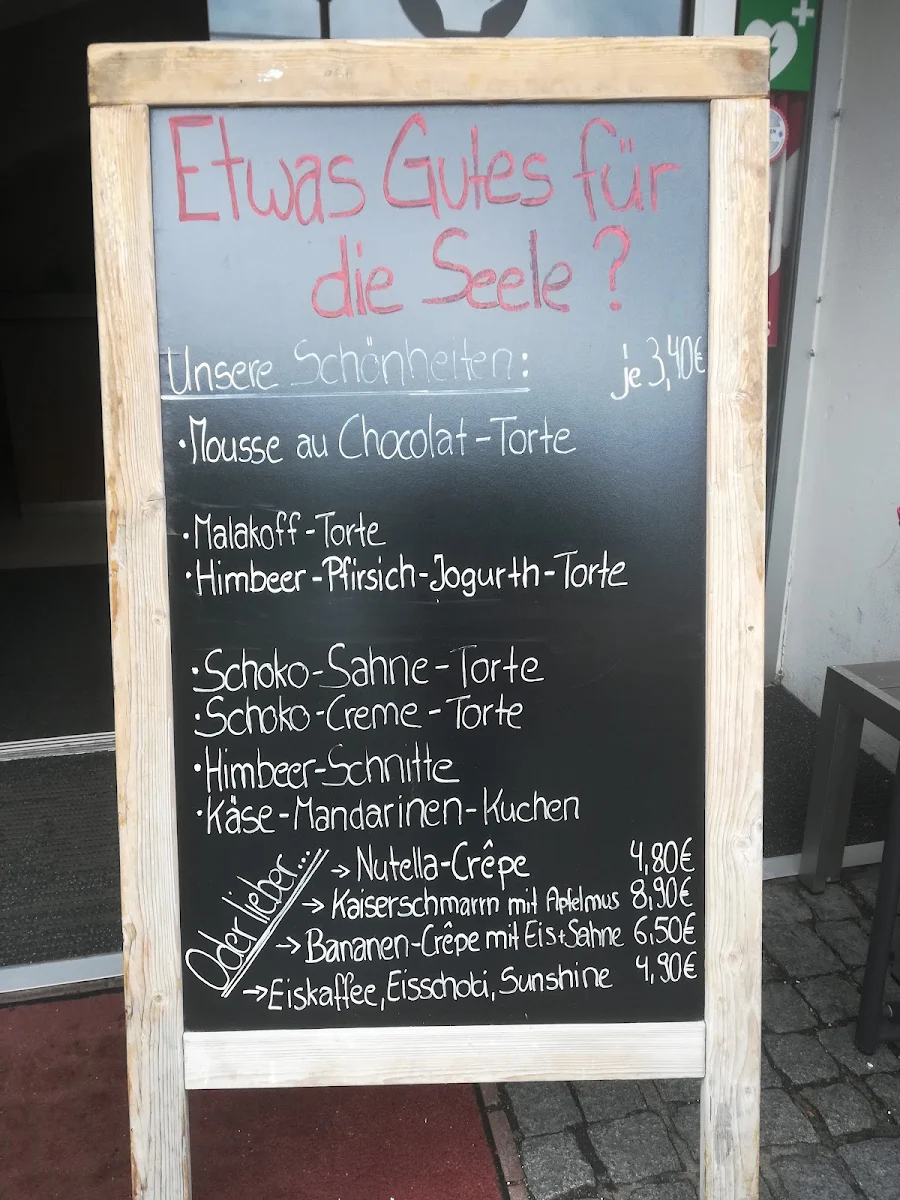 Etwas Gutes für
die Seele?
Unsere Schönheiten: je 3,40€
·Mousse au Chocolat-Torte
·Malakoff-Torte
·Himbeer-Pfirsich-Jogurth-Torte
·Schoko-Sahne-Torte
·Schoko-Creme-Torte
·Himbeer-Schnitte
·Käse-Mandarinen-Kuchen
Oder lieber...
→ Nutella-Crêpe 4,80€
→ Kaiserschmarrn mit Apfelmus 8,90€
→ Bananen-Crêpe mit Eis+Sahne 6,50€
→ Eiskaffee, Eisschoki, Sunshine 4,90€